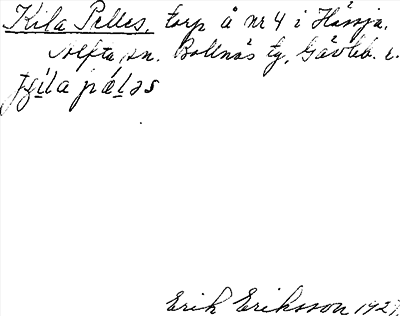 Kila Pelles, torp å nr 4 i Hässja,
Alfta sn. Bollnäs tg, Gävleb. l.
Erik Eriksson 1927.